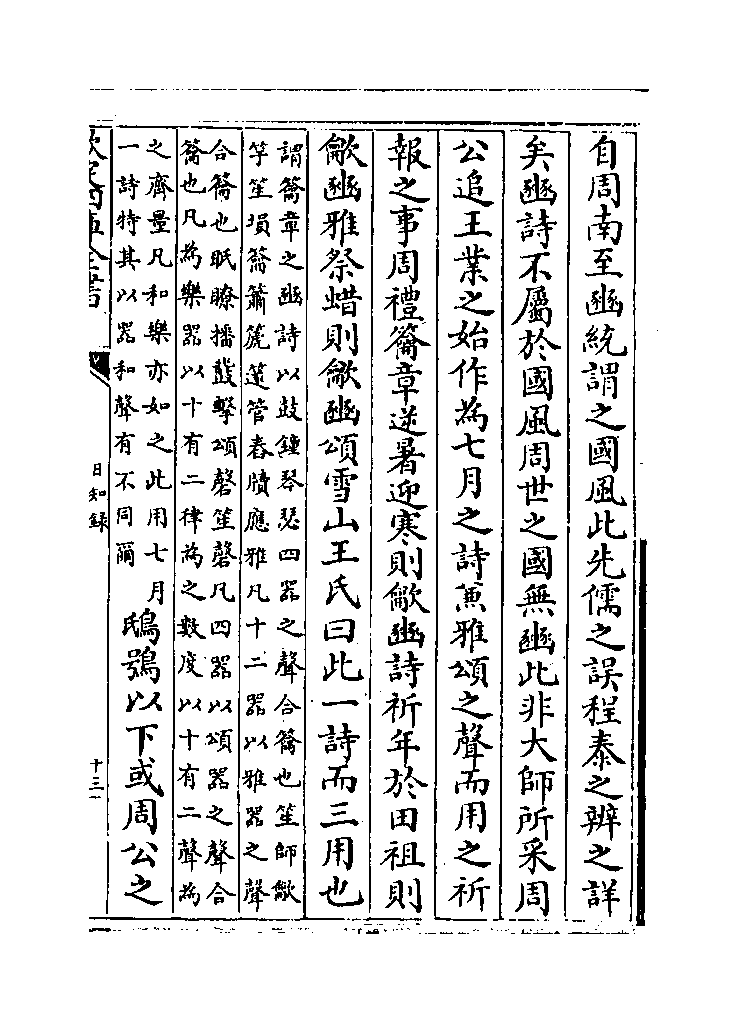 自周南至豳統謂之國風此先儒之誤程泰之辨之詳
矣豳詩不屬於國風周世之國無豳此非大師所采周
公追王業之始作為七月之詩兼雅頌之聲而用之祈
報之事周禮籥章逆暑迎寒則龡豳詩祈年於田祖則
龡豳雅祭蜡則龡豳頌雪山王氏曰此一詩而三用也
謂籥章之豳詩以鼓鍾琴瑟四器之聲合籥也笙師龡
竽笙塤籥簫篪篴管舂牘應雅凡十二器以雅器之聲
合籥也眡瞭播鼗擊頌磬笙磬凡四器以頌器之聲合
籥也凡為樂器以十有二律為之數度以十有二聲為
之齊量凡和樂亦如之此用七月
一詩特其以器和聲有不同爾
鴟鴞以下或周公之
欽定四庫全書
日知録
十三